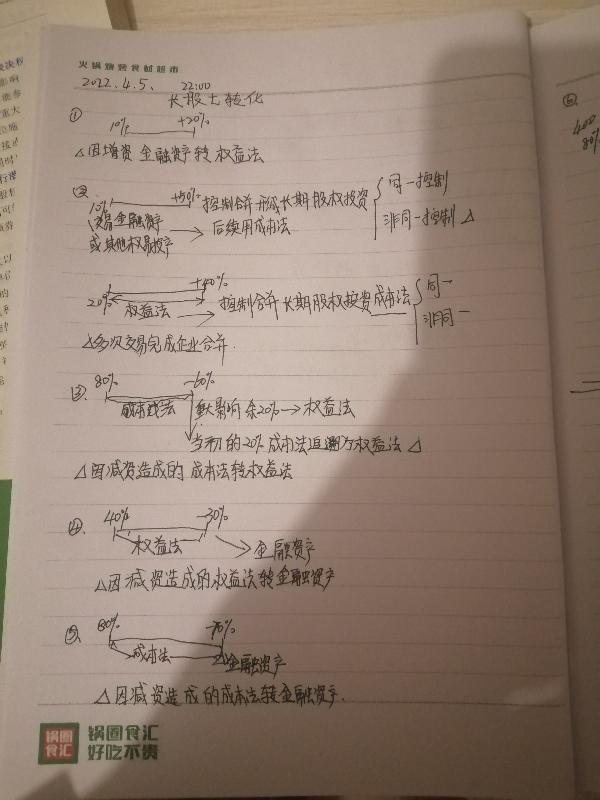 火锅烧烤食材超市
2022.4.5. 22:00
长投七转化
① 10% +20%
△因增资 金融资产转权益法
② 10% +50% 控制合并形成长期股权投资 同一控制
交易金融资产 后续用成本法 非同一控制 △
或其他权易投产
20% +40% 控制合并长期股权投资成本法 同一
权益法 非同一
△多次交易完成企业合并.
③ 80% -60%
成本法 重大影响 余20%→权益法
当初的20%成本法追溯为权益法 △
△因减资造成的 成本法转权益法
④ 40% -30%
权益法 金融资产
△因减资造成的权益法转金融资产
⑤ 80% -70%
成本法 金融资产
△因减资造成的成本法转金融资产.
锅圈食汇
锅圈食汇
好吃不贵
⑥
400
80%